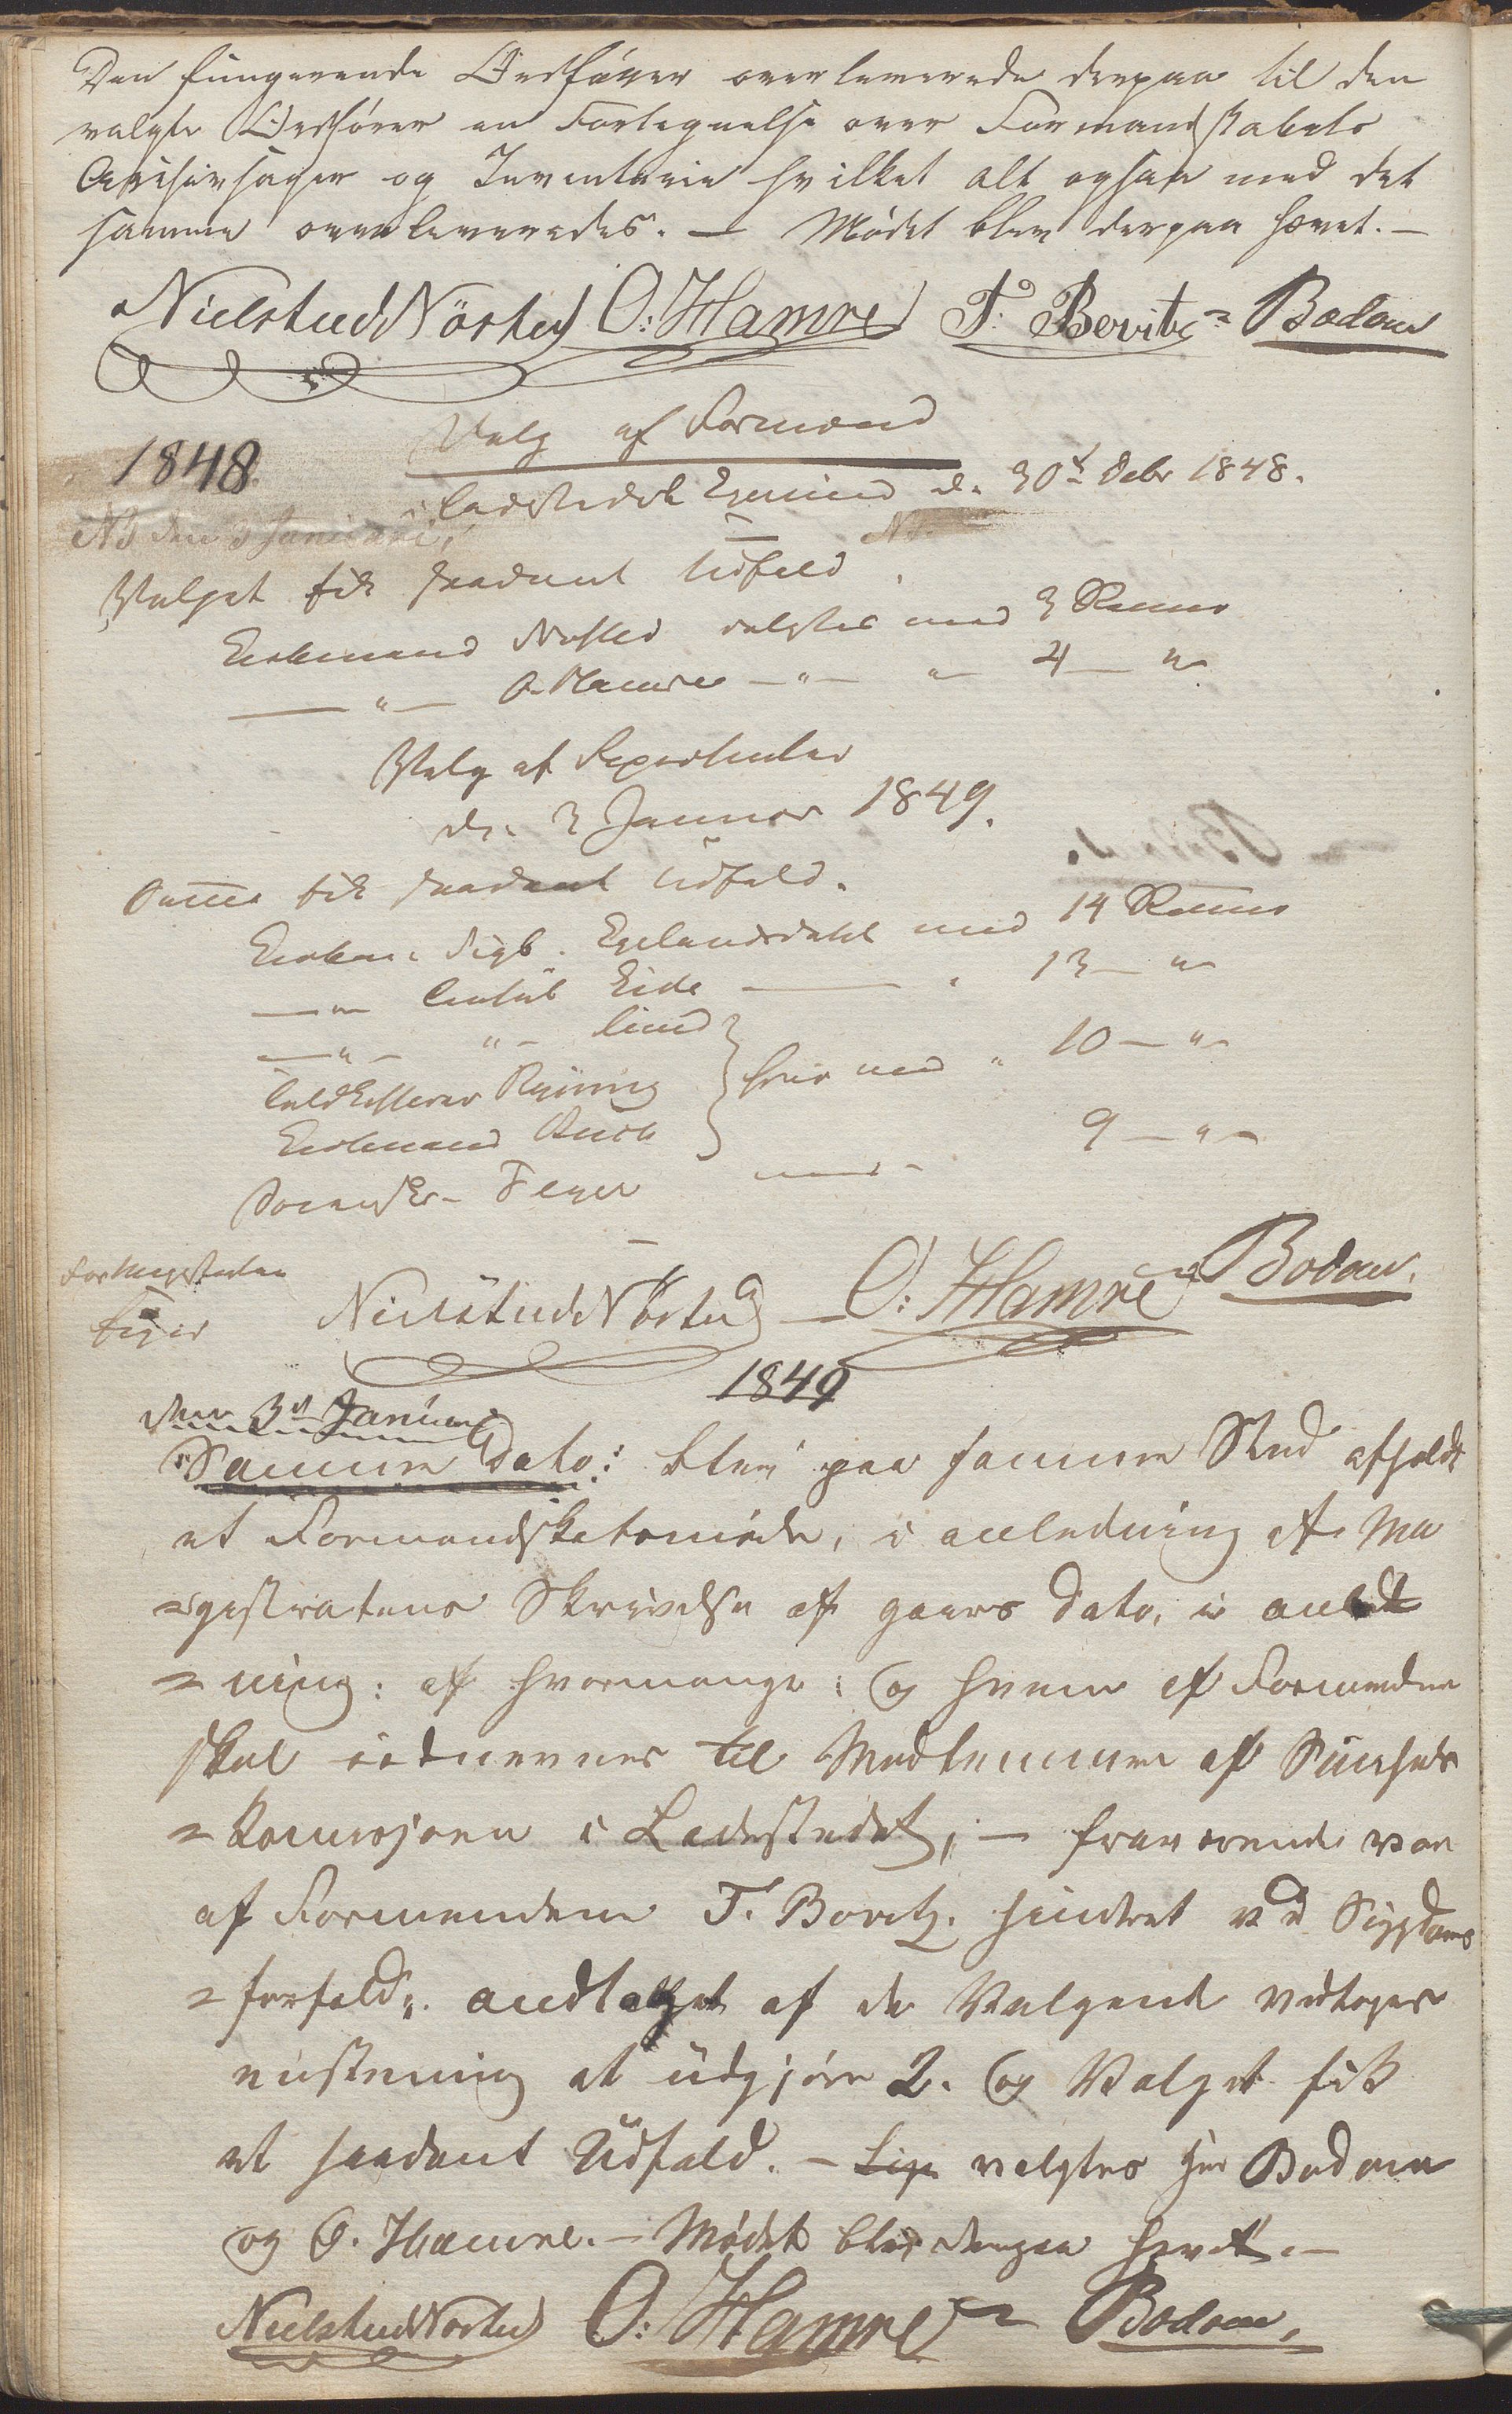 Den fungerende Ordfører overleverede derpaa til den
valgte Ordfører en Fortegnelse over Formandskabets
Archivsager og Inventarie hvilket alt ogsaa med det
samme overleveredes. — Mødet blev derpaa hævet. —
Nielstud Nörsted O: Hamre F. Bovitz = Bodom
Valg af Formænd
1848.
i Ladestedet Egersund d. 30t Debr 1848.
NB den 3 Januari,
Valget fik saadant Udfald.
Kjøbmand Nøsted valgtes med 3 Stemmer
— " — O. Hamre — " — " — 4 — "
Valg af Repræsentanter
d. 3 Januar 1849.
Dette fik saadant Udfald.
Kjøbm. Sigb. Egelandsdahl med 14 Stemmer
— " — Eide — " 13 — "
— " — " — Lund
10 — "
Toldkasserer Rÿning } hver med "
Kjøbmand Buch
9 — "
Feyer med —
Feyer
Nielstud Nörsted — O: Hamre = Bodom.
1849
den 3d Januar
Samme Dato: blev paa samme Sted afholdt
et Formandskabsmøde, i anledning af Ma
=gistratens Skrivelse af gaars Dato, i anled
=ning: af hvormange: og hvem af Formændene
skal udnevnes til Medlemmer af Sundheds
=Komisjonen i Ladestedet; — fraværende var
af Formændene F. Bovitz. hindret ved Sygdoms
=forfald. andtallet af de Valgende vedtoges
enstemig at udgjøre 2. og Valget fik
et saadant Udfald. — valgtes Hr Bodom
og O. Hamre. — Mødet blev derpaa hævet. —
Nielstud Nörsted O: Hamre = Bodom.